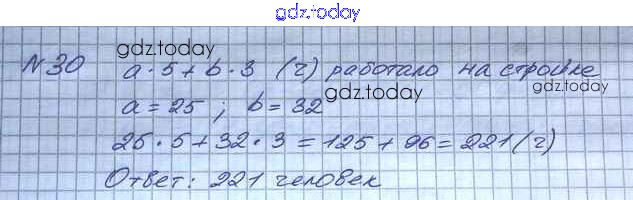 gdz.today
gdz.today
№30 a·5+b·3 (ч) работало на стройке
gdz.today
a=25 ; b=32
gdz.today
25·5+32·3=125+96=221(ч)
Ответ: 221 человек